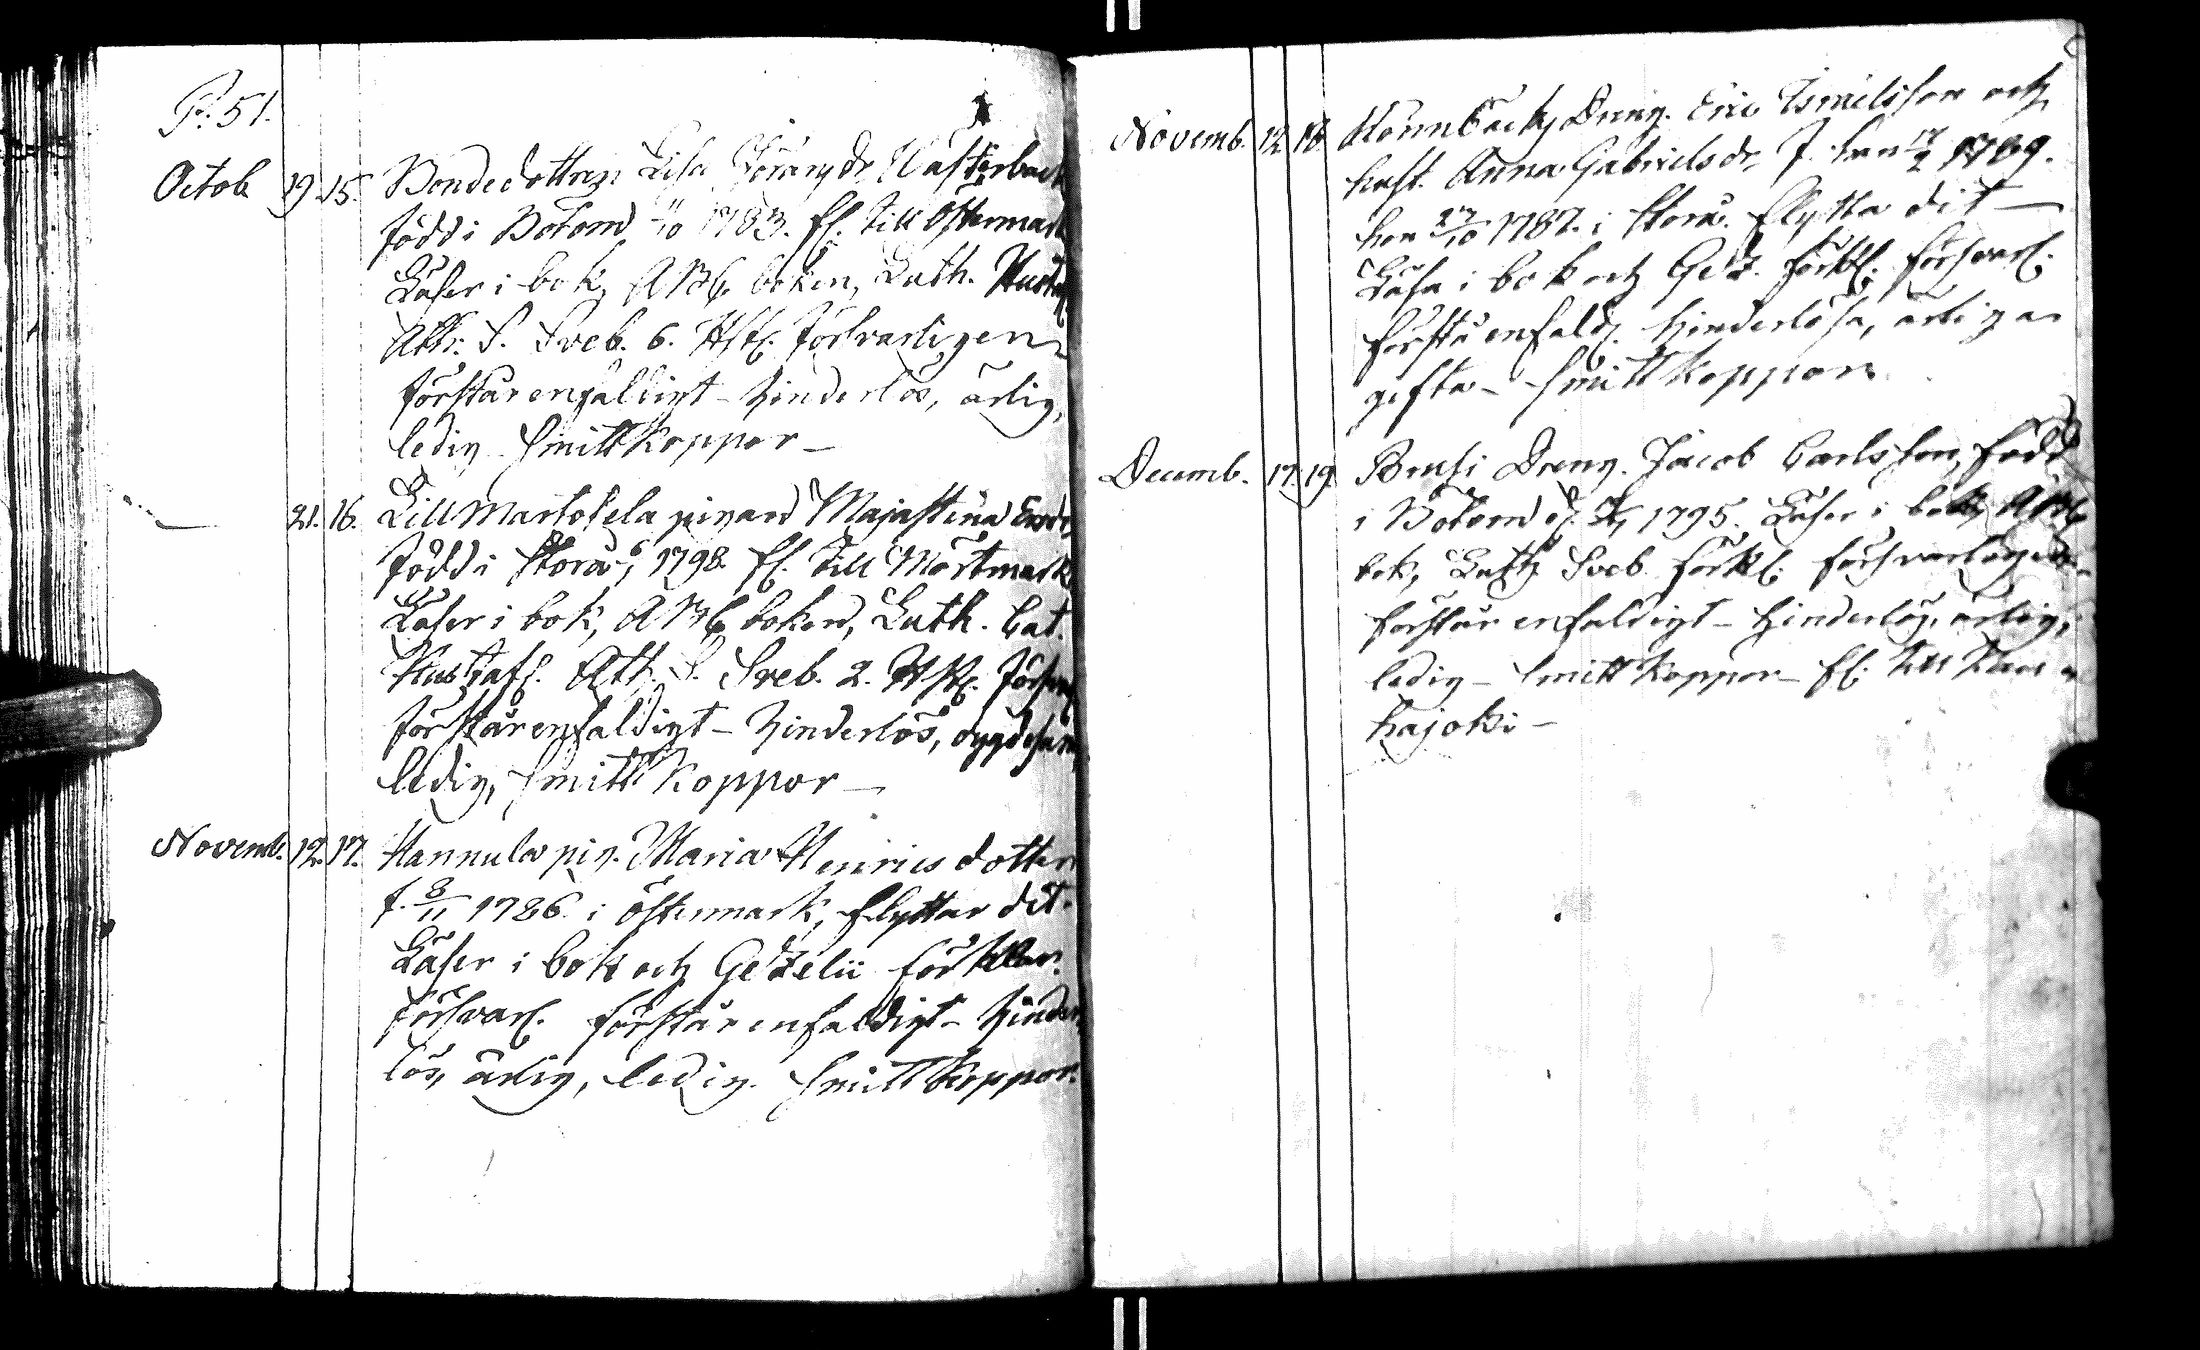 P. 51.
Octob. 19. 15. Bondedottren Lisa Göransdr. Wästerback
född i Bötom 4/10 1783. fl. till Östermark
Läser i bok, ABC boken, Luth. Hustafl.
Ath. S. Sveb. 6. Hfl. försvarligen
förstår enfaldigt – hinderlös, ärlig,
ledig – smittkoppor –
21. 16. Lill Martosela pigan Majastina
född i Storå 1798. fl. till Mörtmark
Läser i bok, ABC boken, Luth. Cat.
Hustafl. Ath. S. Sveb. 2. Hfl. försvarl.
förstår enfaldigt – hinderlös, dygdesam,
ledig, smittkoppor –
Novemb. 12. 17. Hannula pig. Maria Henricsdotter
f. 8/11 1786. i Östermark, flyttar dit.
Läser i bok och Gezelii förklar.
försvarl. förstår enfaldigt – hinder-
lös, ärlig, ledig. smittkoppor.
Novemb. 12. 18. Dreng. Eric Ismelsson och
hust. Anna Gabrielsdr. f. han 1789.
hon 27/10 1787. i Storå. flytta dit –
Läsa i bok och Gez. förkl. försvarl.
förstå enfaldg. hinderlösa, ärliga
gifta – smittkoppor
Decemb. 17. 19. Brusi Dreng. Jacob Carlsson, född
i Bötom d. 1795. Läser i bok, ABC
bok, Luth. Sveb. förkl. försvarligen
förstår enfaldigt – hinderlös, ärlig,
ledig – smittkoppor – fl. till
kajoki –